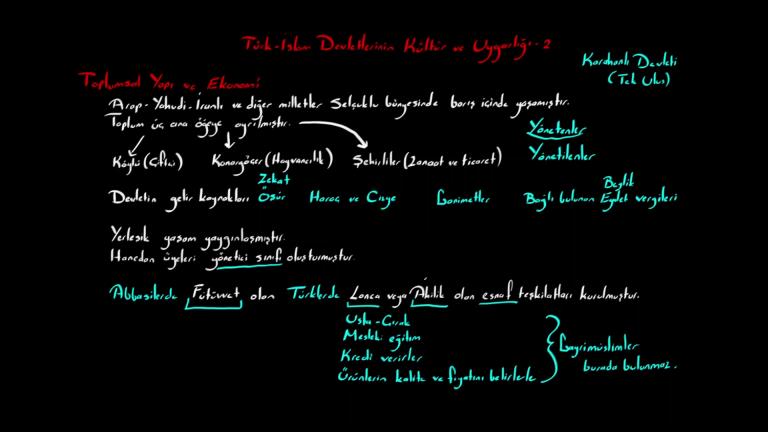 Türk-İslam Devletlerinin Kültür ve Uygarlığı-2
Karahanlı Devleti
(Tek Ulus)
Toplumsal Yapı ve Ekonomi
Arap-Yahudi-İranlı ve diğer milletler Selçuklu bünyesinde barış içinde yaşamıştır.
Toplum üç ana öğeye ayrılmıştır.
Yönetenler
Yönetilenler
Köylü (Çiftçi) Konargöçer (Hayvancılık) Şehirliler (Zanaat ve ticaret)
Zekat Beylik
Devletin gelir kaynakları Öşür Haraç ve Cizye Ganimetler Bağlı bulunan Eyalet vergileri
Yerleşik yaşam yaygınlaşmıştır.
Hanedan üyeleri yönetici sınıfı oluşturmuştur.
Abbasilerde Fütüvvet olan Türklerde Lonca veya Ahilik olan esnaf teşkilatları kurulmuştur.
Usta-Çırak
Mesleki eğitim
Kredi verirler
Ürünlerin kalite ve fiyatını belirlerler
Gayrimüslimler
burada bulunmaz.